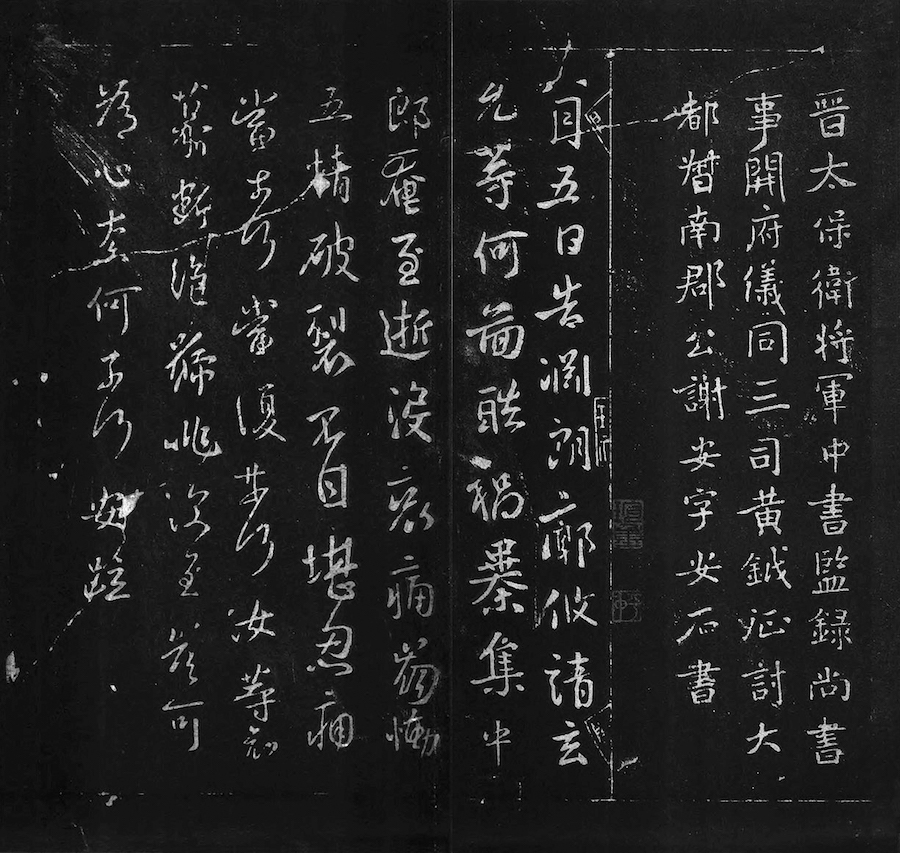 晉太保衛將軍中書監録尚書
事開府儀同三司黄鉞征討大
都督南郡公謝安字安石書
八月五日告淵朗廓攸靖玄
允等何圖酷禍暴集中
郎奄至逝没哀痛崩慟
五情破裂不自堪忍痛
當奈何當復奈何汝等哀
慕斷絕號咷深至豈可
為心奈何奈何安疏